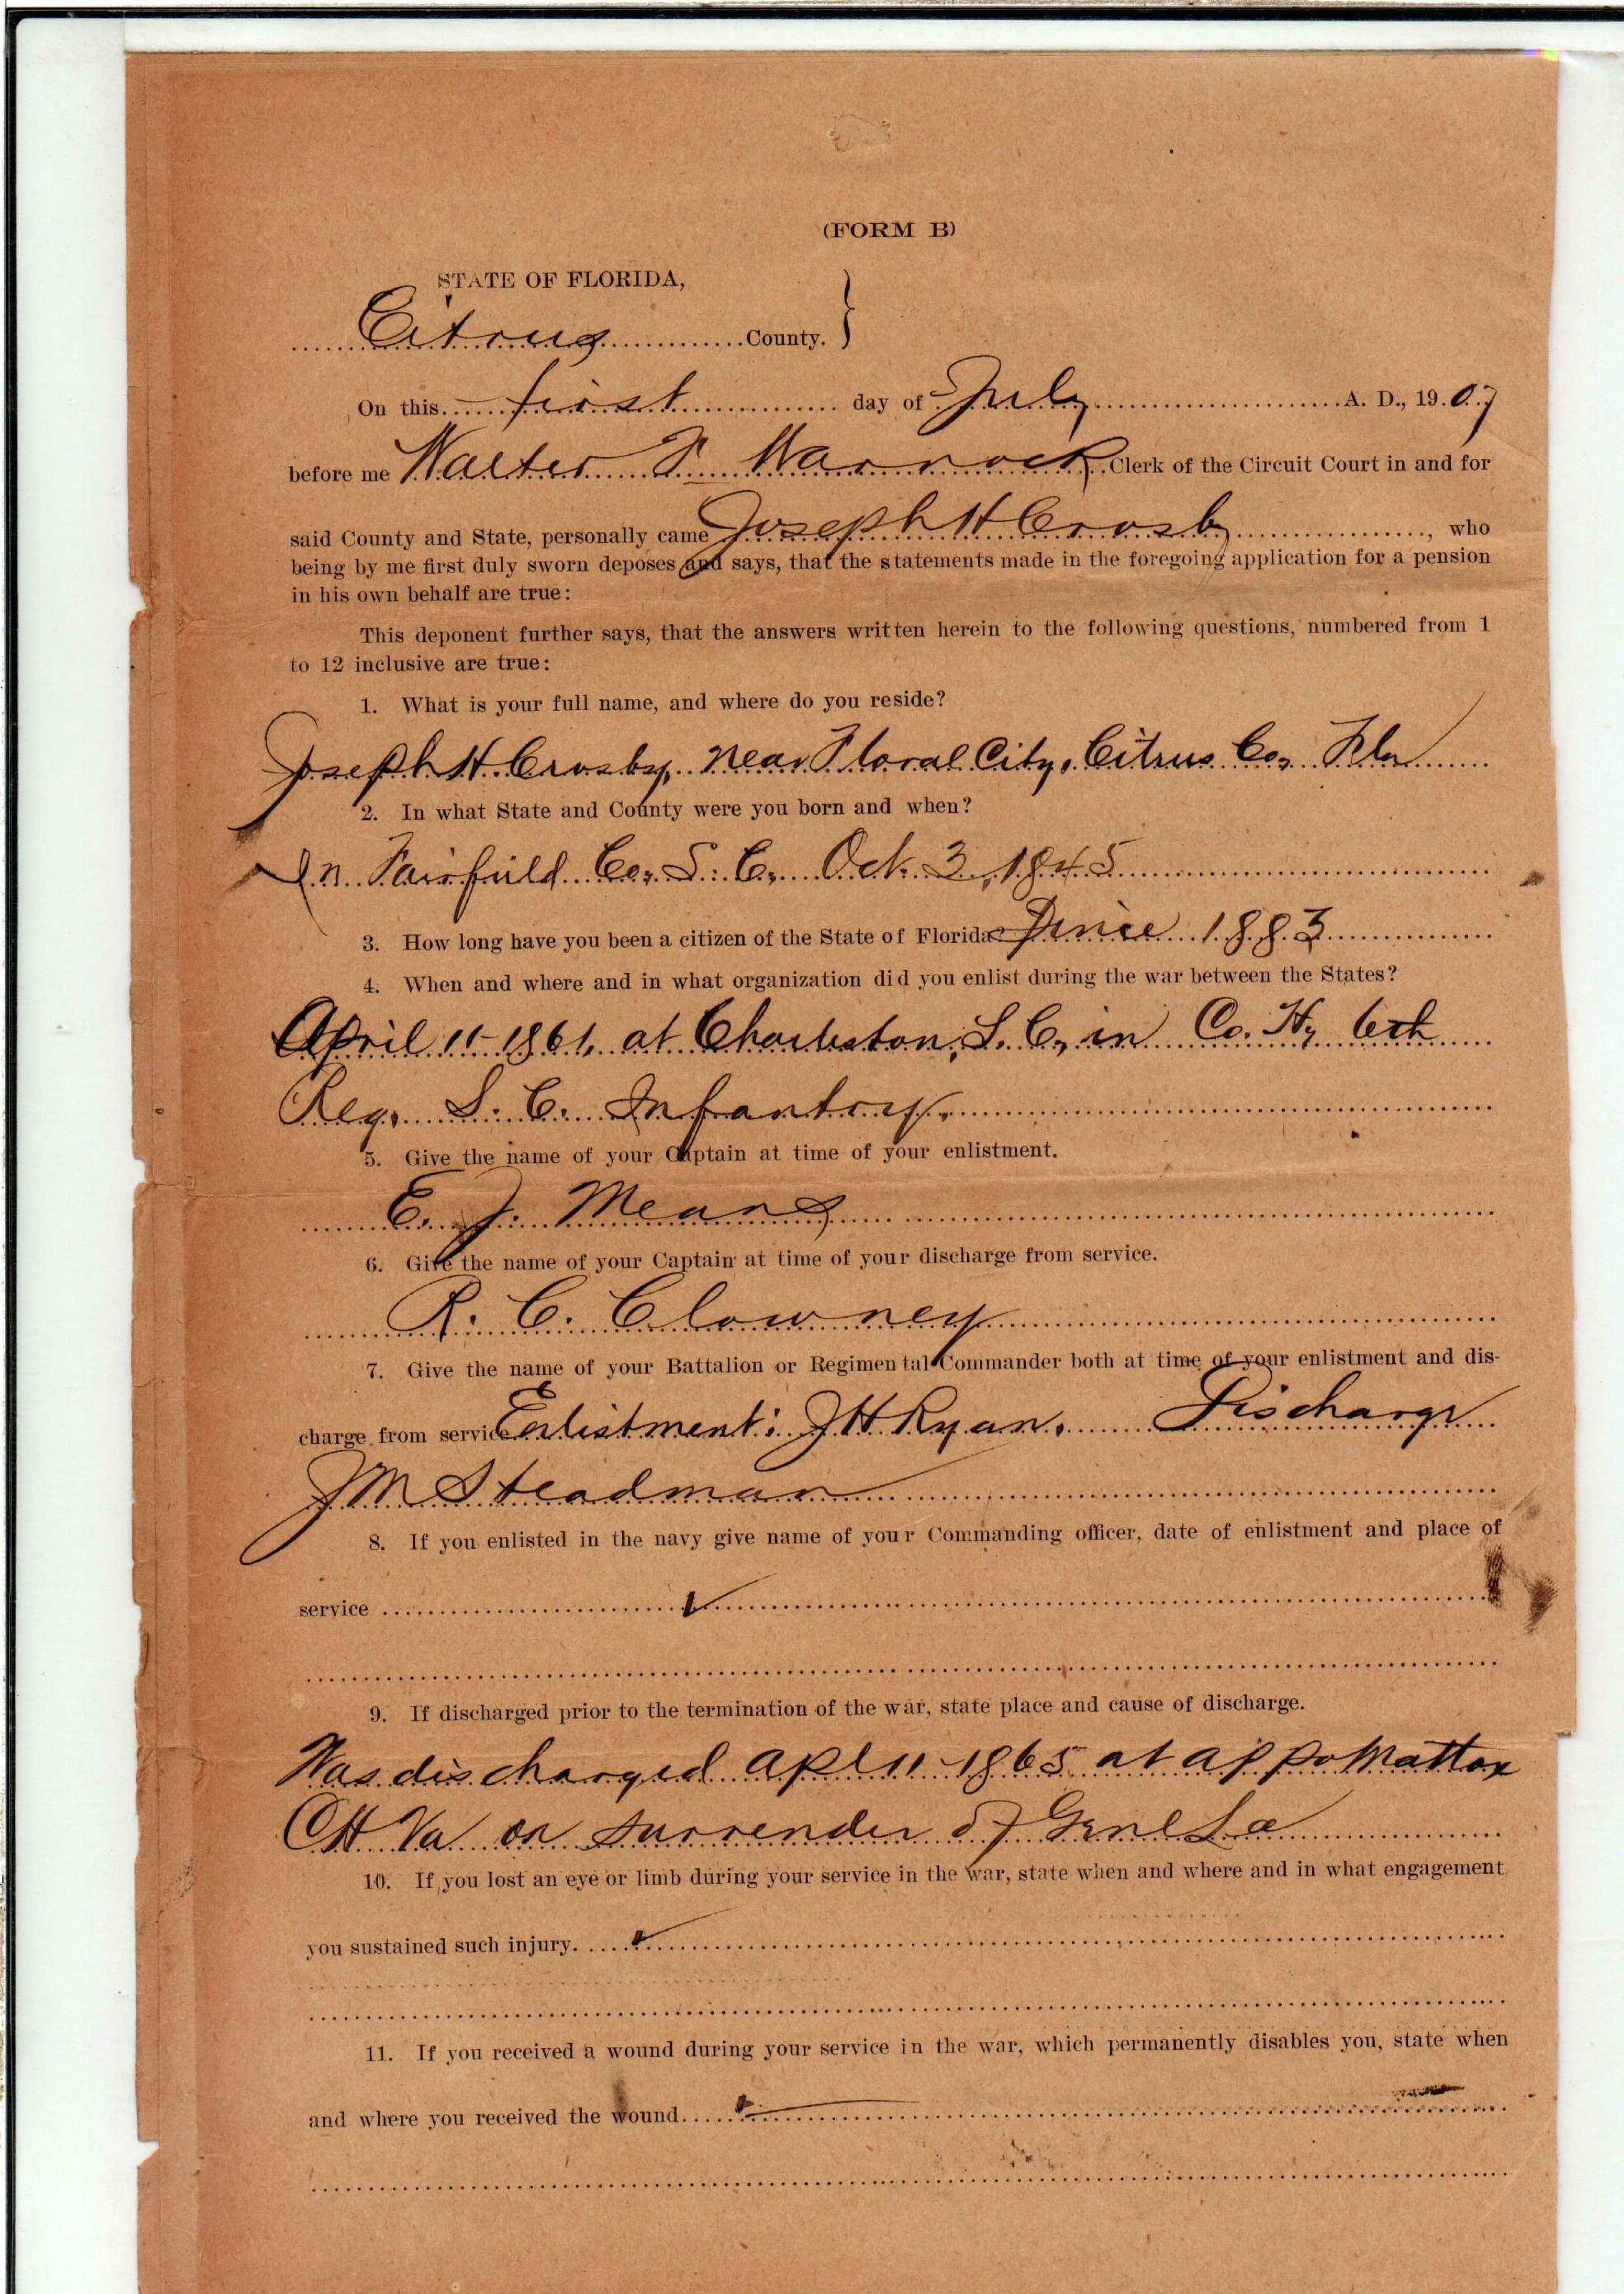 (FORM B)
STATE OF FLORIDA,
Citrus County. }
On this first day of July A. D., 1907
before me Walter Warnock Clerk of the Circuit Court in and for
said County and State, personally came Joseph H Crosby, who
being by me first duly sworn deposes and says, that the statements made in the foregoing application for a pension
in his own behalf are true:
This deponent further says, that the answers written herein to the following questions, numbered from 1
to 12 inclusive are true:
1. What is your full name, and where do you reside?
Joseph H. Crosby, near Floral City, Citrus Co, Fla
2. In what State and County were you born and when?
In Fairfield Co, S. C. Oct. 3, 1845
3. How long have you been a citizen of the State of Florida Since 1883
4. When and where and in what organization did you enlist during the war between the States?
April 11-1861, at Charleston, S. C., in Co. H, 6th
Reg. S. C. Infantry.
5. Give the name of your Captain at time of your enlistment.
E. J. Means
6. Give the name of your Captain at time of your discharge from service.
R. C. Clowney
7. Give the name of your Battalion or Regimental Commander both at time of your enlistment and dis-
charge from service Enlistment: J H Ryan. Discharge
J M Steadman
8. If you enlisted in the navy give name of your Commanding officer, date of enlistment and place of
service
9. If discharged prior to the termination of the war, state place and cause of discharge.
Was discharged Apl 11-1865 at Appomattox
CH Va on surrender of Genl Lee
10. If you lost an eye or limb during your service in the war, state when and where and in what engagement
you sustained such injury.
11. If you received a wound during your service in the war, which permanently disables you, state when
and where you received the wound